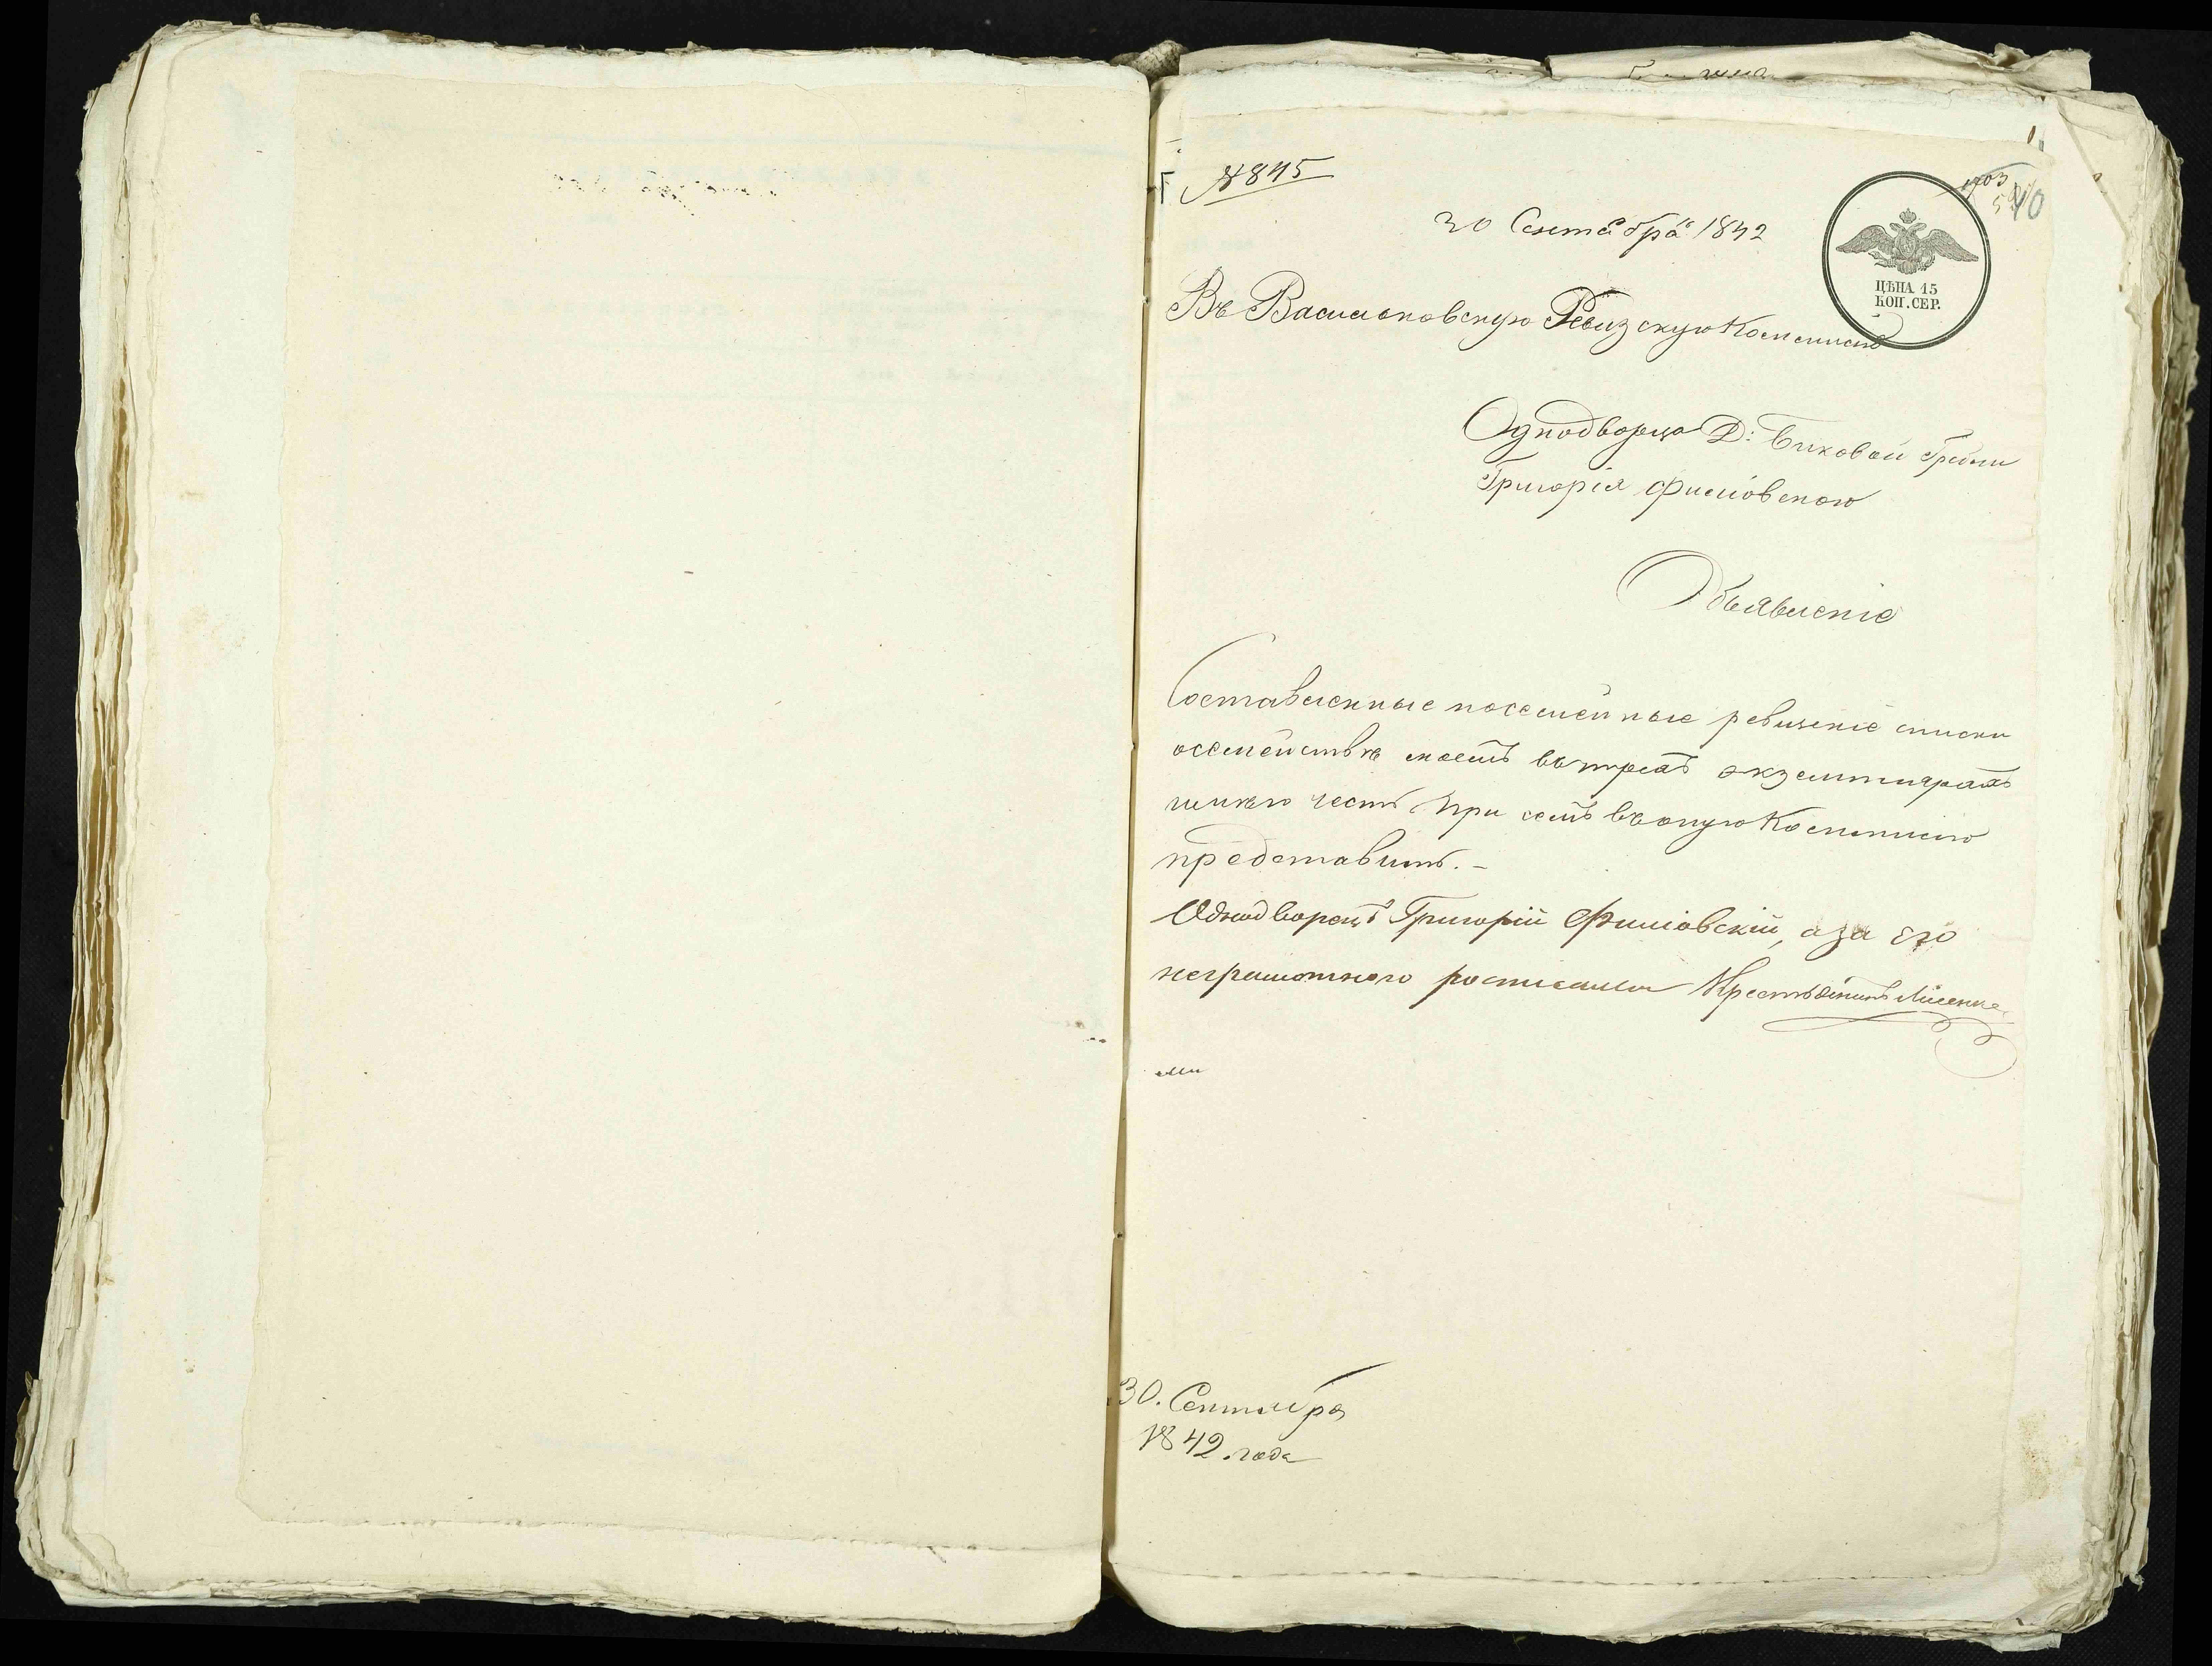 № 845
30 Сентября 1842
ЦѢНА 15
КОП. СЕР.
Въ Васильковскую Ревизскую Коммисію
Однодворца Д: Биковой Гребли
Григорія Филіовского
Объявленіе
Составленные посемейные ревизскіе списки
осемействѣ моемъ въ трехъ экземплярахъ
имѣю честь при семъ въ оную Коммисію
представить. –
Однодворецъ Григорій Филіовскій, а за его
неграмотного росписался Крестьянинъ
30. Сентября
1842 года